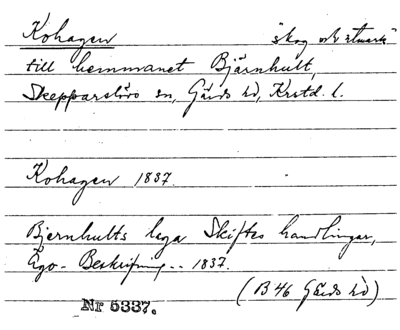 Kohagen "skog och utmark"
till hemmanet Bjärnhult,
Skepparslövs sn, Gärds hd, Krstd. l.
Kohagen 1837.
Bjernhults laga Skiftes handlingar,
Ego-Beskrifning -- 1837.
(B 46 Gärds hd)
Nr 5337.